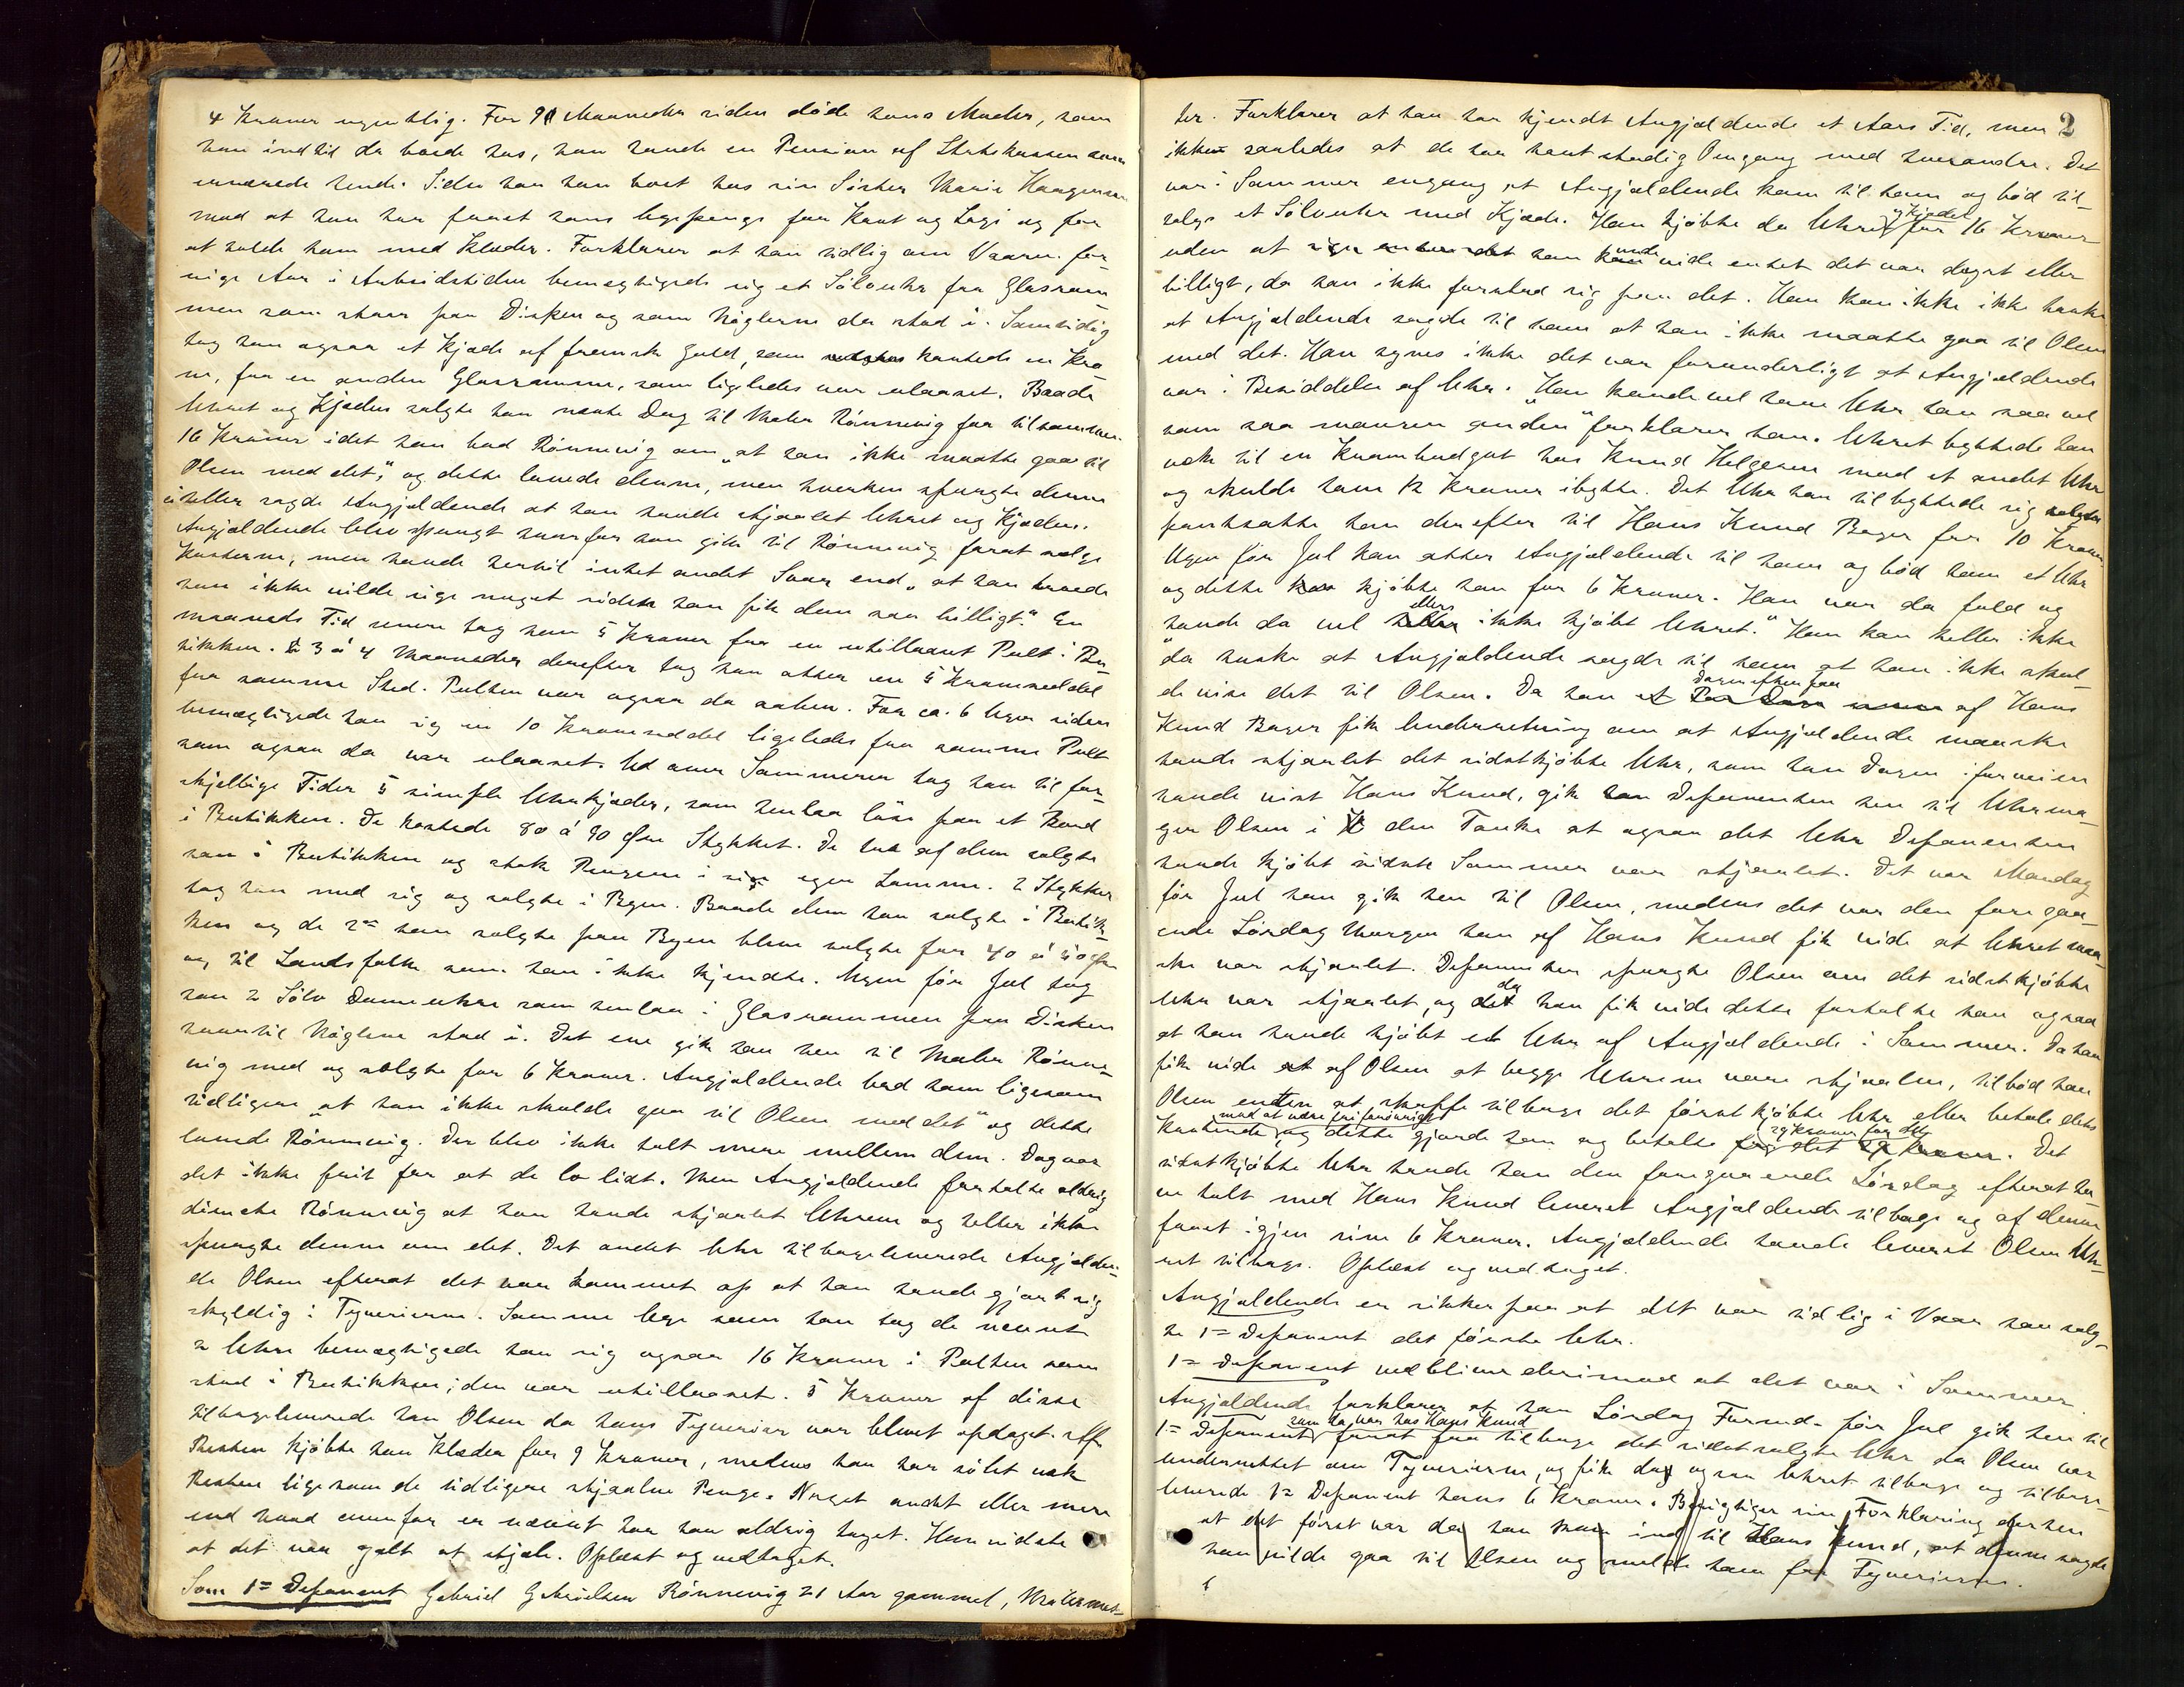 4 Kroner ugentlig. For 9 Maaneder siden døde hans Moder, som
han indtil da boede hos, hun havde en Pension af Statskassen som
ernærede hende. Siden har han boet hos sin Søster Marie Haagensen
mod at hun har faaet hans Ugepenge for Kost og Logi og for
at holde ham med Klæder. Forklarer at han tidlig om Vaaren for-
rige Aar i Arbeidstiden bemægtigede sig et Sølvuhr fra Glasram
men som staar paa Disken og som Nøglerne da stod i. Samtidig
tog han ogsaa et Kjæde af fransk Guld, som kostede en Kro
ne, fra en anden Glasramme, som ligeledes var ulaaset. Baade
Uhret og Kjæden solgte han næste Dag til Maler Rønnevig for tilsammen
16 Kroner idet han bad Rønnevig om "at han ikke maatte gaa til
Olsen med det", og dette lovede denne, men hverken spurgte denne
ei heller sagde Angjældende at han havde stjaalet Uhret og Kjæden.
Angjældende blev spurgt hvorfor han gik til Rønnevig forat sælge
Kosterne, men havde hertil intet andet Svar end "at han troede
han ikke vilde sige noget siden han fik dem saa billigt." En
maaneds Tid senere tog han 5 Kroner fra en utillaaset Pult i Bu-
tikken. 3 á 4 Maaneder derefter tog han atter en 5 Kroneseddel
fra samme Sted. Pulten var ogsaa da aaben. For ca. 6 Uger siden
bemægtigede han sig en 10 Kroneseddel ligeledes fra samme Pult
som ogsaa da var ulaaset. Ud over Sommeren tog han til for-
skjellige Tider 5 simple Uhrkjæder, som henlaa løse paa et Bord
i Butikken. De kostede 80 á 90 Øre Stykket. De tre af dem solgte
han i Butikken og stak Pengene i sin egen Lomme. 2 Stykker
tog han med sig og solgte i Byen. Baade dem han solgte i Butik-
ken og de 2de han solgte paa Byen bleve solgte for 40 á 50 Øre
og til Landsfolk som han ikke kjendte. Ugen før Jul tog
han 2 Sølv Dameuhre som henlaa i Glasrammen paa Disken
hvortil Nøglene stod i. Det ene gik han hen til Maler Rønne-
vig med og solgte for 6 Kroner. Angjældende bad ham ligesom
tidligere "at han ikke skulde gaa til Olsen med det" og dette
lovede Rønnevig. Der blev ikke talt mere mellem dem. Dog var
det ikke frit for at de lo lidt. Men Angjældende fortalte aldrig
direkte Rønnevig at han havde stjaalet Uhrene og heller ikke
spurgte denne om det. Det andet Uhr tilbageleverede Angjælden-
de Olsen efterat det var kommet op at han havde gjort sig
skyldig i Tyverierne. Samme Uge som han tog de nævnte
2 Uhre bemægtigede han sig ogsaa 16 Kroner i Pulten som
stod i Butikken; den var utillaaset. 5 Kroner af disse
tilbageleverede han Olsen da hans Tyverier var blevet opdaget. Af
Resten kjøbte han Klæder for 9 Kroner, medens han har sølet væk
Resten ligesom de tidligere stjaalne Penge. Noget andet eller mere
end hvad ovenfor er nævnt har han aldrig taget. Han vidste
at det var galt at stjæle. Oplæst og vedtaget.
Som 1ste Deponent Gabriel Gabrielsen Rønnevig 21 Aar gammel, Malermes-
2
ter. Forklarer at han har kjendt Angjældende et Aars Tid, men
ikke saaledes at de har havt stadig Omgang med hverandre. Det
var i Sommer engang at Angjældende kom til ham og bød til-
salgs et Sølvuhr med Kjæde. Han kjøbte da Uhret og kjædet for 16 Kroner
uden at han kunde vide enten det var dyrt eller
billigt, da han ikke forstod sig paa det. Han kan ikke ikke huske
at Angjældende sagde til ham at han ikke maatte gaa til Olsen
med det. Han synes ikke det var forunderligt at Angjældende
var i Besiddelse af Uhr. "Han kunde vel have Uhr han saa vel
som saa mangen anden" forklarer han. Uhret byttede han
væk til en Krambudgut hos Knud Helgesen mod et andet Uhr
og skulde have 12 Kroner ibytte. Det Uhr han tilbyttede sig solgte
pantsatte han derefter til Hans Knud Bager for 10 Kroner.
Ugen før Jul kom atter Angjældende til ham og bød ham et Uhr
og dette kjøbte han for 6 Kroner. Han var da fuld og
"havde da vel ellers ikke kjøbt Uhret." Han kan heller ikke
da huske at Angjældende sagde til ham at han ikke skul-
de vise det til Olsen. Da han Dagen efter paa af Hans
Knud Bager fik Underretning om at Angjældende maaske
havde stjaalet det sidstkjøbte Uhr, som han Dagen iforveien
havde vist Hans Knud, gik Deponenten hen til Uhrma-
ger Olsen i den Tanke at ogsaa det Uhr Deponenten
havde kjøbt sidste Sommer var stjaalet. Det var Mandag
før Jul han gik hen til Olsen, medens det var den foregaa-
ende Lørdag Morgen han af Hans Knud fik vide at Uhret maa-
ske var stjaalet. Deponenten spurgte Olsen om det sidstkjøbte
Uhr var stjaalet, og da han fik vide dette fortalte han ogsaa
at han havde kjøbt et Uhr af Angjældende i Sommer. Da han
fik vide af Olsen at begge Uhrene vare stjaalne, tilbød han
Olsen enten at skaffe tilbage det først kjøbte Uhr eller betale dets
Kostende mod at være fri forøvrigt, og dette gjorde han og betalte 29 Kroner for det. Det
sidstkjøbte Uhr havde han den foregaaende Lørdag efterat ha-
ve talt med Hans Knud leveret Angjældende tilbage og af denne
faaet igjen sine 6 Kroner. Angjældende havde leveret Olsen Uh-
ret tilbage. Oplæst og vedtaget.
Angjældende er sikker paa at det var tidlig i Vaar han solg-
te 1ste Deponent det første Uhr.
1ste Deponent vedbliver derimod at det var i Sommer.
Angjældende forklarer at han Lørdag Formd. før Jul gik hen til
1ste Deponent som da var hos Hans Knud forat faa tilbage det sidstsolgte Uhr da Olsen var
underrettet om Tyverierne, og fik da ogsaa Uhret tilbage og tilbage-
leverede 1ste Deponent hans 6 Kroner. Berigtiger sin Forklaring derhen
at det først var da han kom ind til Hans Knud, at denne sagde
han vilde gaa til Olsen og melde ham for Tyverierne.